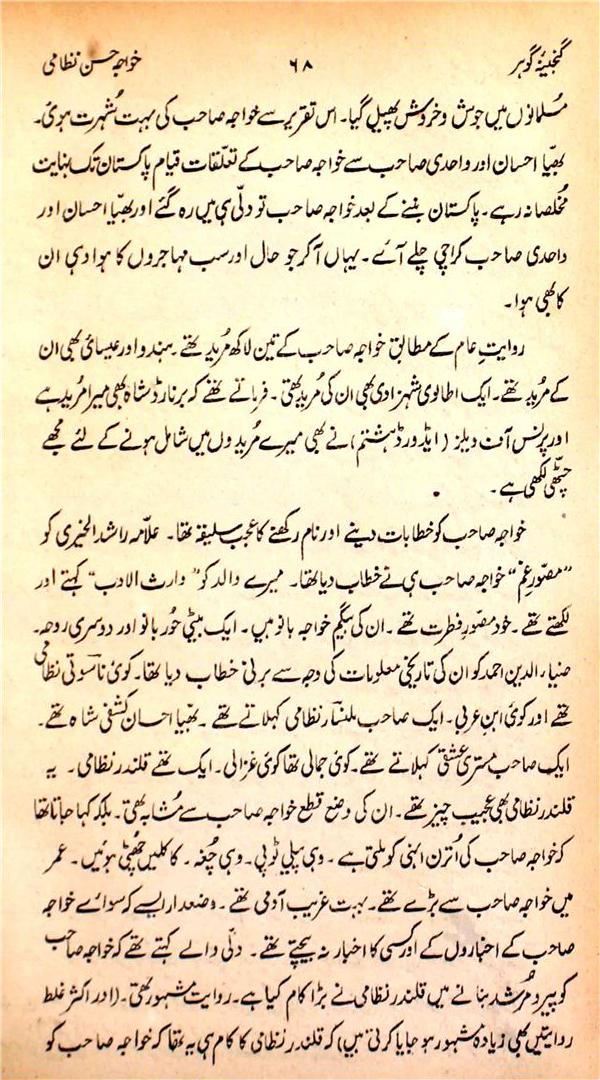 گنجینۂ گوہر ۶۸ خواجہ حسن نظامی
مسلمانوں میں جوش و خروش پھیل گیا۔ اس تقریر سے خواجہ صاحب کی بہت شہرت ہوئی۔
بھیّا احسان اور واحدی صاحب سے خواجہ صاحب کے تعلّقات قیام پاکستان تک نہایت
مخلصانہ رہے۔ پاکستان بننے کے بعد خواجہ صاحب تو دلّی ہی میں رہ گئے اور بھیّا احسان اور
واحدی صاحب کراچی چلے آئے۔ یہاں آکر جو حال اور سب مہاجروں کا ہوا وہی ان
کا بھی ہوا۔
روایتِ عام کے مطابق خواجہ صاحب کے تین لاکھ مُرید تھے۔ ہندو اور عیسائی بھی ان
کے مُرید تھے۔ ایک اطالوی شہزادی بھی ان کی مُرید تھی۔ فرماتے تھے کہ برنارڈ شاہ بھی میرا مُرید ہے
اور پرنس آف ویلز (ایڈورڈ ہشتم) نے بھی میرے مُریدوں میں شامل ہونے کے لئے مجھے
چٹّھی لکھی ہے۔
خواجہ صاحب کو خطابات دینے اور نام رکھنے کا عجب سلیقہ تھا۔ علّامہ راشد الخیری کو
”مصوّرِ غم“ خواجہ صاحب ہی نے خطاب دیا تھا۔ میرے والد کو ”وارث الادب“ کہتے اور
لکھتے تھے۔ خود مصوّرِ فطرت تھے۔ ان کی بیگم خواجہ بانو ہیں۔ ایک بیٹی حُور بانو اور دوسری روحہ۔
ضیاء الدین احمد کو ان کی تاریخی معلومات کی وجہ سے برنی خطاب دیا تھا۔ کوئی ناسوتی نظامی
تھے اور کوئی ابنِ عربی۔ ایک صاحب ملنسار نظامی کہلاتے تھے۔ بھیّا احسان کشفی شاہ تھے۔
ایک صاحب مستری عشقی کہلاتے تھے۔ کوئی جمالی تھا کوئی غزالی۔ ایک تھے قلندر نظامی۔ یہ
قلندر نظامی بھی عجیب چیز تھے۔ ان کی وضع قطع خواجہ صاحب سے مُشابہ تھی۔ بلکہ کہا جاتا تھا
کہ خواجہ صاحب کی اُترن انہی کو ملتی ہے۔ وہی پیلی ٹوپی۔ وہی چُغہ۔ کاکلیں چھٹی ہوئیں۔ عمر
میں خواجہ صاحب سے بڑے تھے۔ بہت غریب آدمی تھے۔ وضعدار ایسے کہ سوائے خواجہ
صاحب کے اخباروں کے اور کسی کا اخبار نہ بیچتے تھے۔ دلّی والے کہتے تھے کہ خواجہ صاحب
کو پیر و مُرشد بنانے میں قلندر نظامی نے بڑا کام کیا ہے۔ روایت مشہور تھی۔ (اور اکثر غلط
روایتیں بھی زیادہ مشہور ہو جایا کرتی ہیں) کہ قلندر نظامی کا کام ہی یہ تھا کہ خواجہ صاحب کو